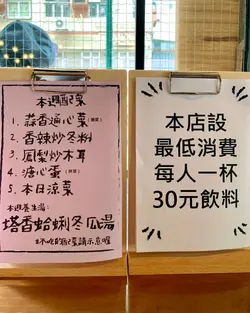 本週配菜
1. 蒜香通心菜
2. 香辣炒冬粉
3. 鳳梨炒木耳
4. 溏心蛋
5. 本日涼菜
本週養生湯:
塔香蛤蜊冬瓜湯
本店設
最低消費
每人一杯
30元飲料